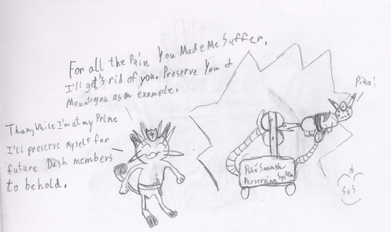 For all the Pain You Made Me Suffer,
I'll get's rid of you. Preserve You &
as an example.
Than, While I'm at my Prime
I'll preserve myself for
future Dash members
to behold.
Pika!
Perserving System